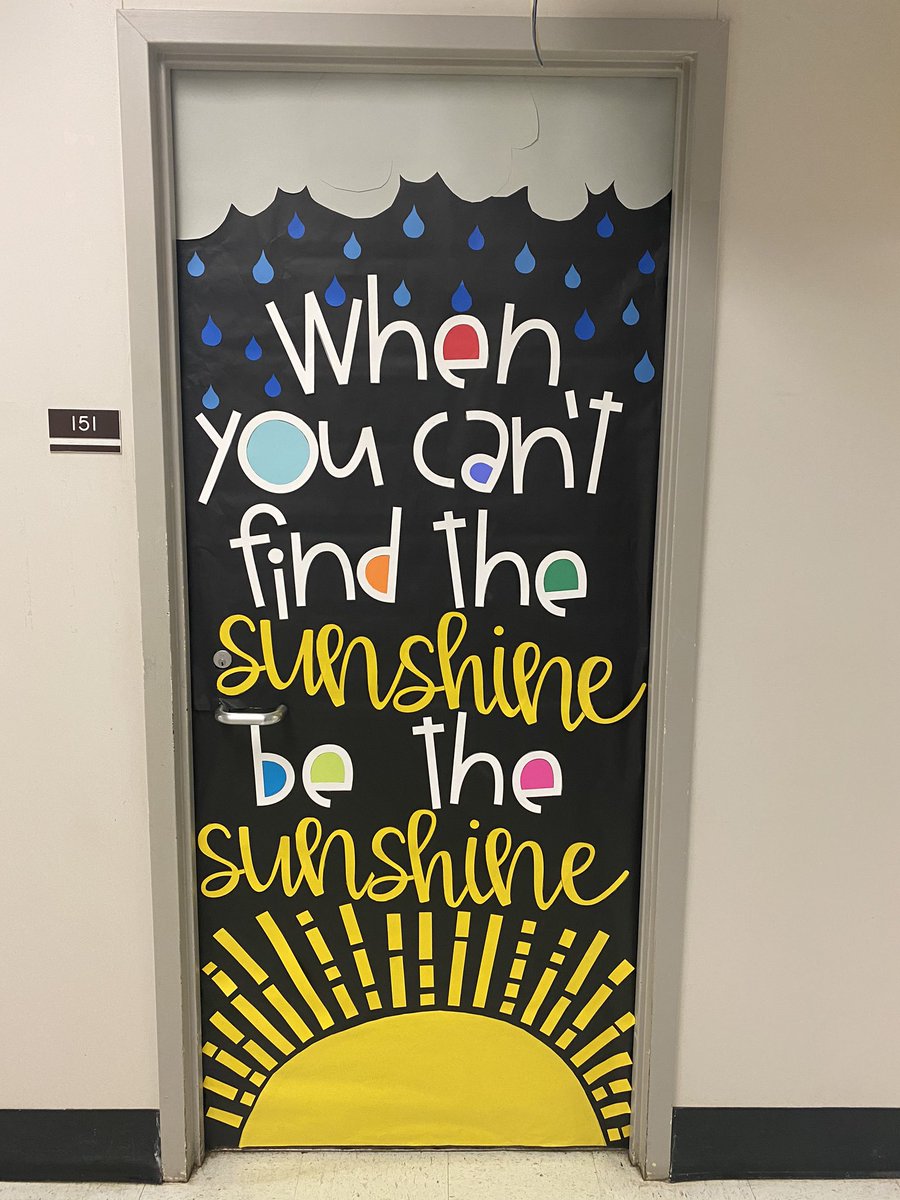 151
When
you can't
find the
sunshine
be the
sunshine